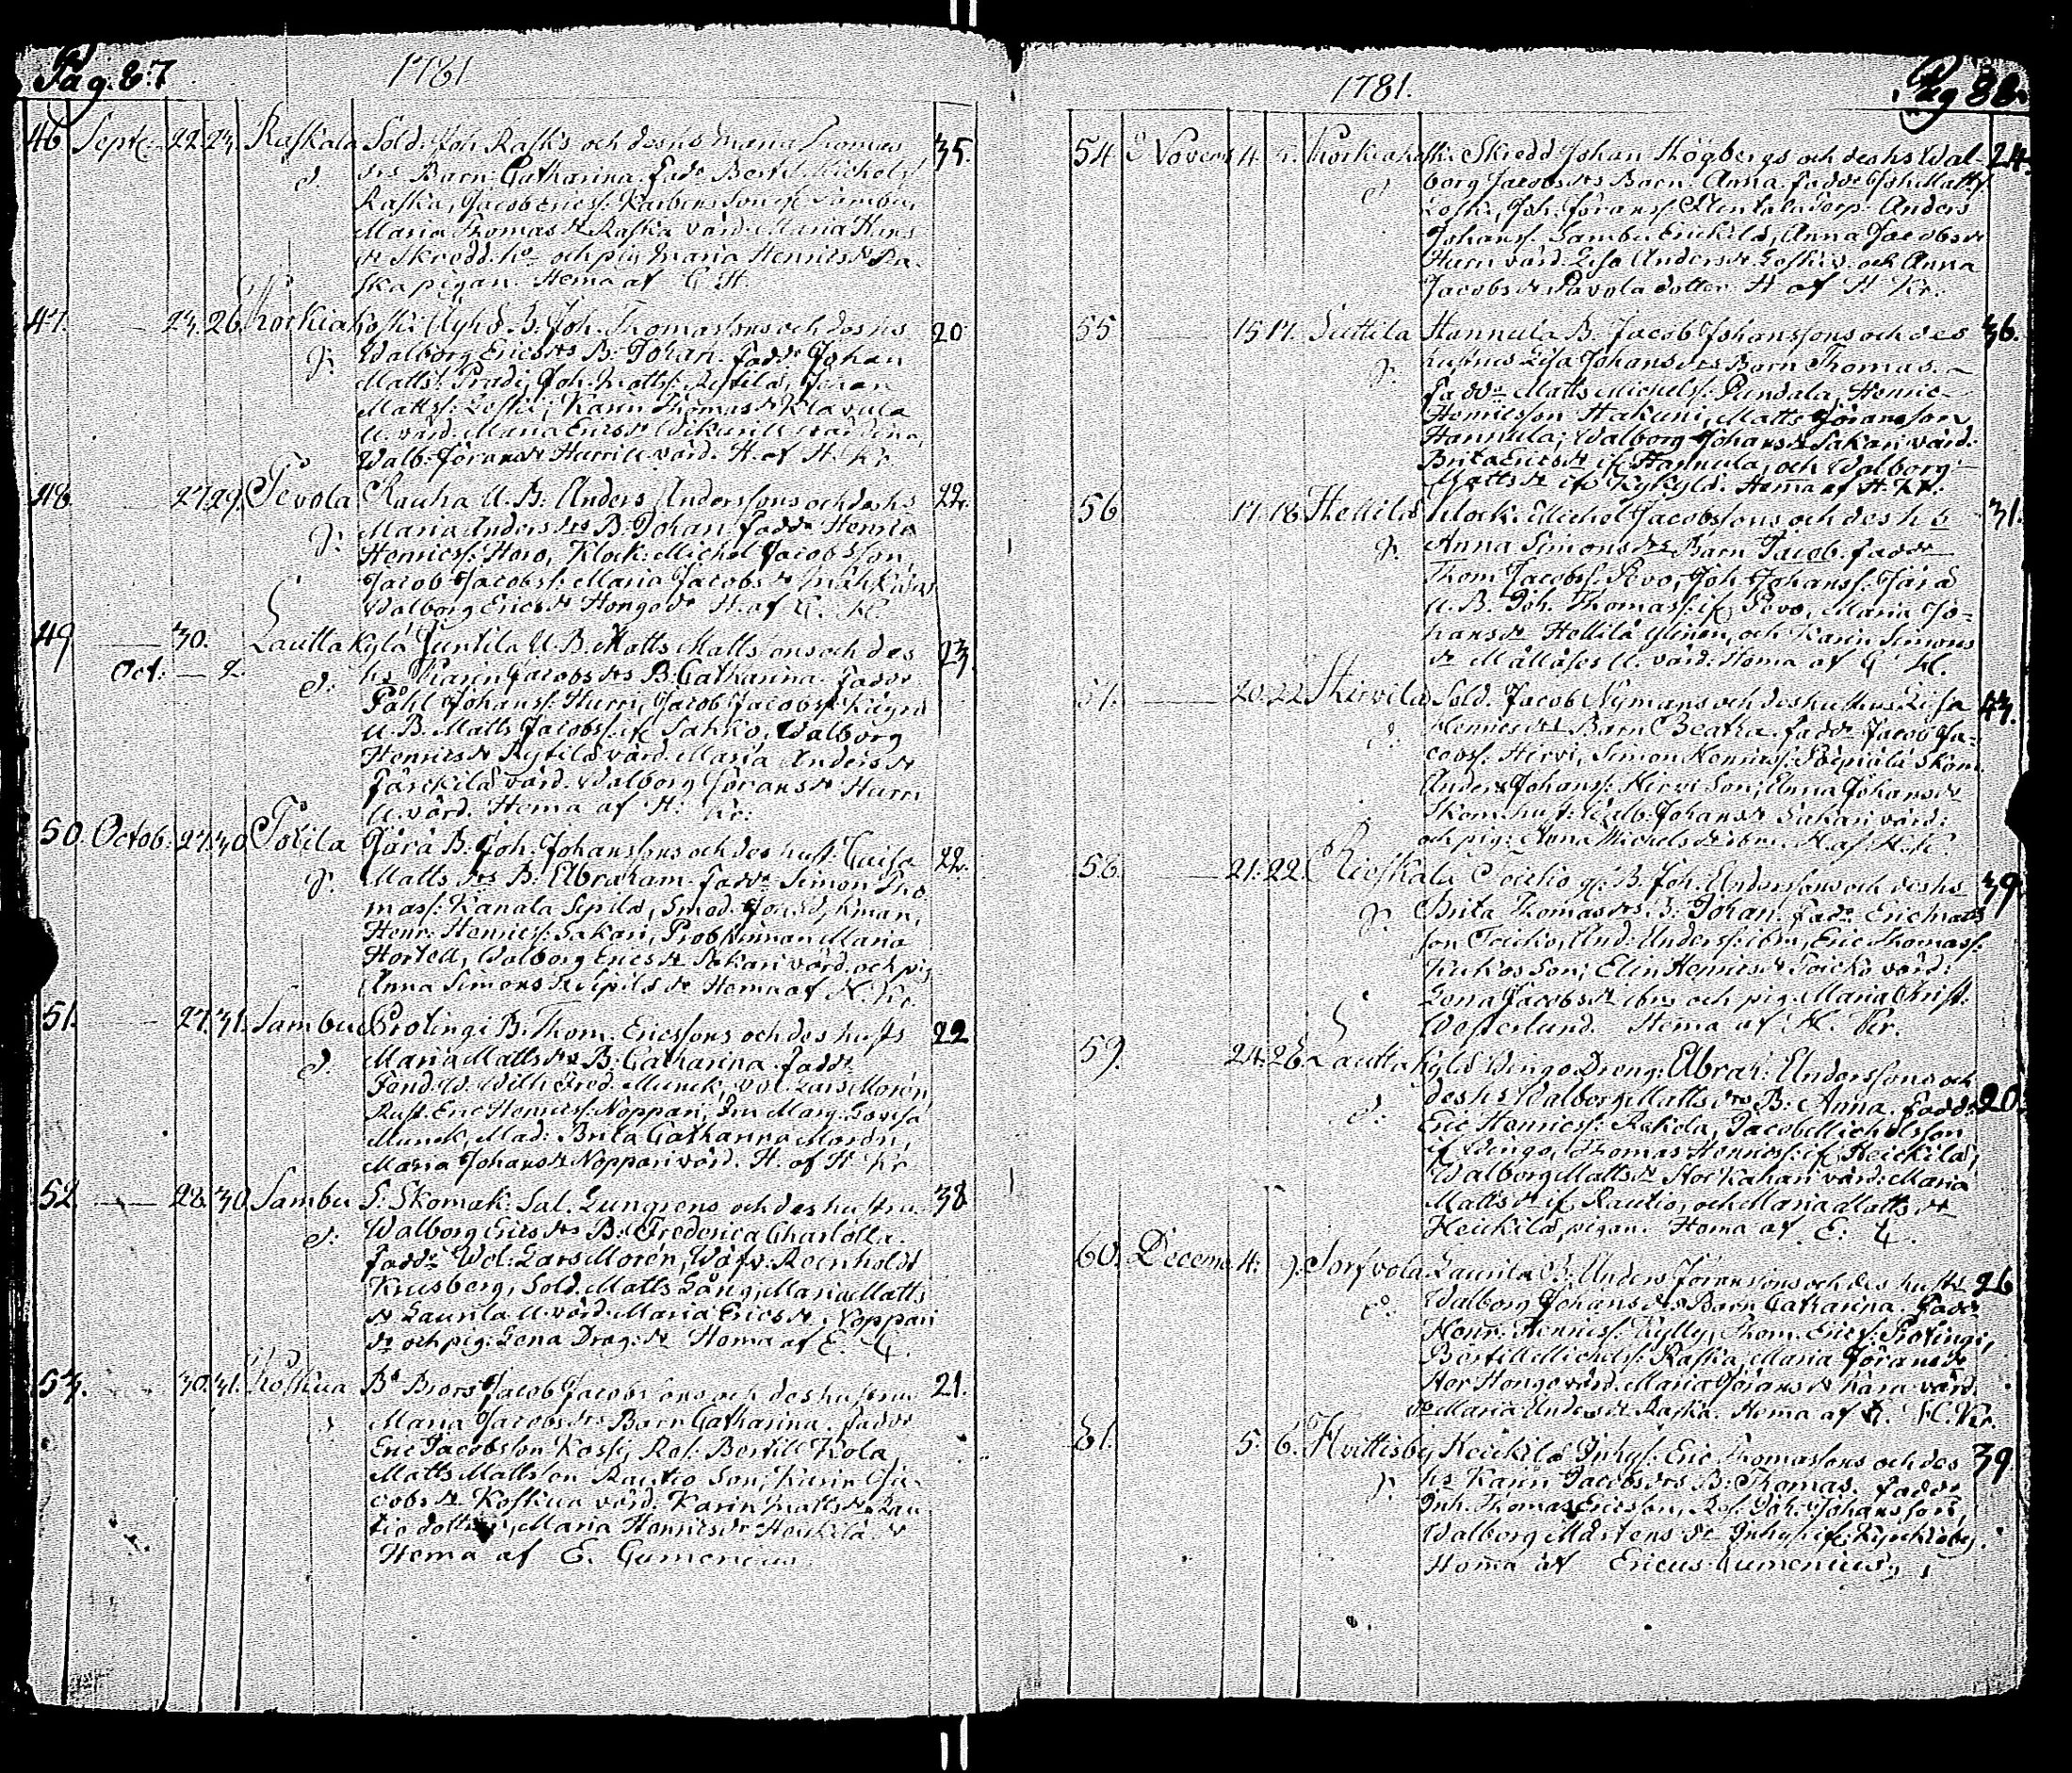 Pag. 87
1781
46 Sept: 22. 23. Raskala Sold. Joh. Rasks och des hs Maria Thomas 35.
d. drs Barn: Catharina. fadd. Bertil Michels
Raska, Jacob Erics: Sambu,
Maria Thomas dr Raska värd. Maria Hans
dr Skredd. h: och pig. Maria Henrics dr Ra-
ska pigan. Hema af C. H.
47. — 23. 26. Korkiak Uÿkö B: Joh. Thomassons och des hs 20
g. Walborg Erics drs B: Johan. fadd. Johan
Mattss: Joh. Mattss:
Mattss: Karin Thomas dr Klavula
U. värd. Maria Erics dr
Walb: Jörans dr Hurri U. värd. H. af H. Kr.
48. — 27. 29. Pevola Rauha U. B: Anders Anderssons och des hs 22.
g. Maria Anders drs B: Johan. fadd. Henric
Henricss: Horo, Klock: Michel Jacobsson,
Jacob Jacobss: Maria Jacobs dr
Walborg Erics dr Hongo dr H. af
49 — 30. Lauttakylä Juntila U. B. Matts Mattssons och des 23.
Oct: — 2. d: hs Karin Jacobs drs B: Catharina. fadd.
Påhl Johanss: Hurri, Jacob Jacobss:
U. B. Matts Jacobss: if. Sahko, Walborg
Henrics dr Rytilä värd. Maria Anders dr
värd. Walborg Jörans dr Hurri
U. värd. Hema af H. Kr:
50. Octob: 27. 30 Potila Jårå B: Joh: Johanssons och des hust: Caisa 22.
g. Matts drs B: Abraham. fadd. Simon Tho
mass: Kanala Sepilä, Smed. Jon
Henr: Henricss: Sakari, Prob. Maria
Hortell, Walborg Erics dr Sakari värd. och pig
Anna Simons dr Sipilä dr Hema af H. Kr.
51. — 27. 31. Sambu Prolingi B: Thom. Ericssons och des hust: 22
d. Maria Matts drs B: Catharina. fadd.
Fend. W. Wilh. Fred. Munck, Vol. Lars Morén,
Rust. Eric Henricss: Noppari, Marg: Lovisa
Munck, Mad: Brita Catharina Morén,
Maria Johans dr Noppari värd. H. af H. Kr
52. — 28. 30 Sambu S. Skomak: Sal. Lungrens och des hustru 38
d: Walborg Erics drs B: Frederica Charlotta.
fadd: Vol: Lars Morén, Reinholdt
Krusberg, Sold. Matts Gång, Maria Matts
dr Laurila U. värd. Maria Erics dr Noppari
dr och pig: Lena Drag: dr Hema af E. C.
53. 30. 31. Koskua B: Brors Jacob Jacobssons och des hustru 21.
Maria Jacobs drs Barn Catharina. fadd
Eric Jacobsson Kossi, Ros: Bertill Kola
Matts Mattsson Rautio Son, Karin Ja-
cobs dr Koskua värd. Karin Matts dr Rau-
tio dotter, Maria Henrics dr Heickilä dr
Hema af E. Cumenius
1781.
Pag 88.
54. Novem: 4. 5. Korkiak Skredd Johan Högbergs och des hs Wal- 24.
d borg Jacobs drs Barn: Anna. fadd. Joh. Matts
Joh. Jöranss: Anders
Johanss: Sambu Anna Jacobs dr
Hurri värd. Lisa Anders dr och Anna
Jacobs dr Pavola dotter H af H Kr.
55 — 15 17. Suttila Hannula B: Jacob Johanssons och des 36.
g. hustrus Lisa Johans drs Barn Thomas.
fadd. Matts Michelss: Pundala, Henric
Henricsson Hakuni, Matts Jöransson
Hannula, Walborg Johans dr Sakari värd.
Brita Erics dr if. Hannula, och Walborg
Matts dr if. Kykylä. Hema af H. Kr.
56 17. 18. Hellilä Klock. Michel Jacobssons och des hs 31.
g. Anna Simons drs Barn Jacob. fadd
Thom. Jacobss: Pevo, Joh. Johanss: Jårå
U. B. Joh. Thomass: if. Pevo, Maria Jo-
hans dr Hellilä och Karin Simons
dr U. värd. Hema af
57. — 20. 22 Hirvilä Sold. Jacob Nymans och des hustrus Lisa 43.
d: Henrics drs Barn Beatha. fadd. Jacob Ja-
cobss: Hirvi, Simon Henricss: Skom.
Anders Johanss: Hirvi Son, Anna Johans dr
Skom. hust. Walb. Johans dr Sakari värd:
och pig: Anna Michels dr ibm. H af H. K.
58. 21. 22. Rieskala Toickio B. Joh. Anderssons och des hs 39.
g. Brita Thomas drs B: Johan. fadd. Eric Matts
son Toickio, And: Anderss: ibm, Eric Thomass:
Kukos Son, Elin Henrics dr Toicko värd:
Lena Jacobs dr ibm och pig. Maria Christ:
Westerlund. Hema af H. Kr.
59. 24. 26. Lauttakylä Wingo Dreng: Abrah: Anderssons och
d: des hs Walborg Matts drs B: Anna. fadd: 20.
Eric Henricss: Reckola, Jacob Michelsson
if Wingo, Thomas Henricss: if Heickilä,
Walborg Matts dr Stor Kahari värd: Maria
Matts dr if Rautio, och Maria Matts dr
Heickilä pigan. Hema af E. C.
60. Decemb. 4. 9. Sorfvola Laurila B: Anders Jöranssons och des hust: 26
d. Walborg Johans drs Barn Catharina. fadd
Henr: Henricss: Kylly, Thom. Ericss: Prolingi,
Bertill Michelss: Raska, Maria Jörans dr
Stor Hongo värd. Maria Jörans dr Kara värd
Maria Anders dr Raska. Hema af H. Kr.
61. 5. 6. Hvittisby Heickilä Inhys: Eric Thomassons och des 39
g. hs Karin Jacobs drs B: Thomas. fadd
Inh. Thomas Ericsson, Ros: Joh: Johansson,
Walborg Mårtens dr Inhys if. Kyrckioby.
Hema af Ericus Cumenius